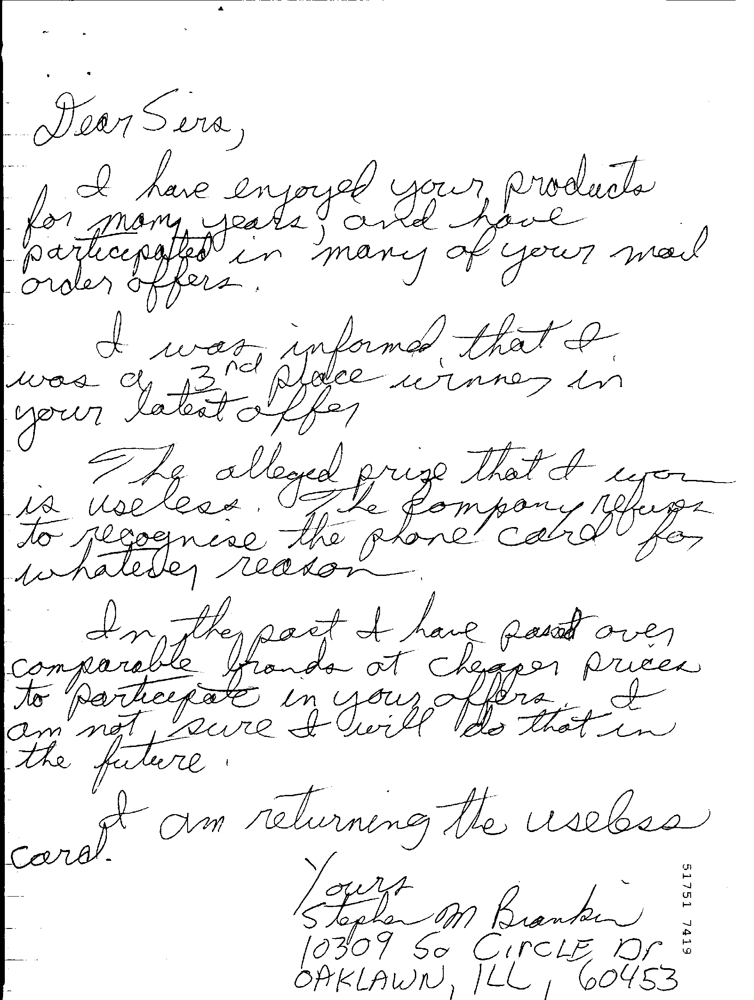 Dear Sirs,
I have enjoyed your products
for many years, and have
participated in many of your mail
order offers.
I was informed that I
was a 3rd place winner in
your latest offer
The alleged prize that I won
is useless. The Company refuses
to recognise the phone card for
whatever reason.
In the past I have passed over
comparable brands at cheaper prices
to participate in your offers. I
am not sure I will do that in
the future.
I am returning the useless
card.
Yours
Stephen M Brankin
10309 So CIRCLE Dr
OAKLAWN, ILL, 60453
51751 7419